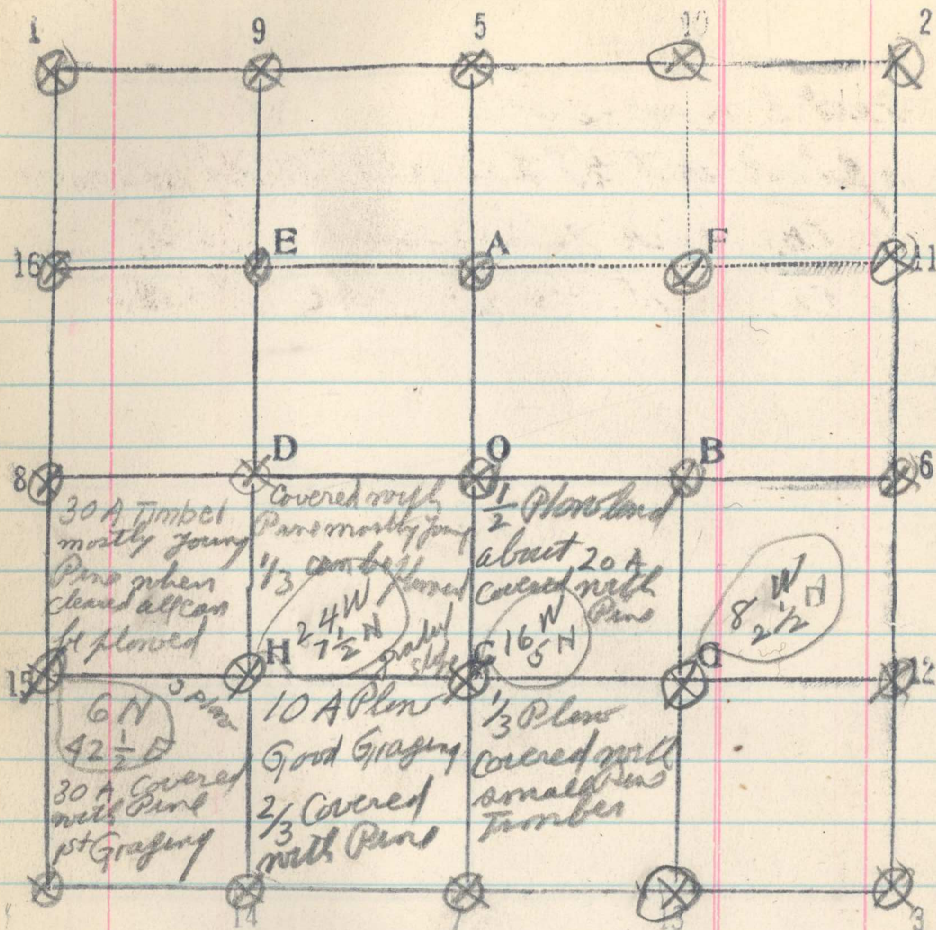 1 9 5 10 2
16 E A F 11
8 D O B 6
30 A Timber
mostly young
Pine when
cleared all can
be plowed
Covered with
Pine mostly young
1/3 can be plowed
4 W
2 7 1/2 N
gradual
slope
1/2 Plow land
about 20 A
covered with
Pine
W
16 5 N
W
8 2 1/2 N
15 H C G 12
6 N
42 1/2 E
30 A Covered
with Pine
1st Grazing
10 A Plow
Good Grazing
2/3 Covered
with Pine
1/3 Plow
covered with
small Pine
Timber
14 7 13 3